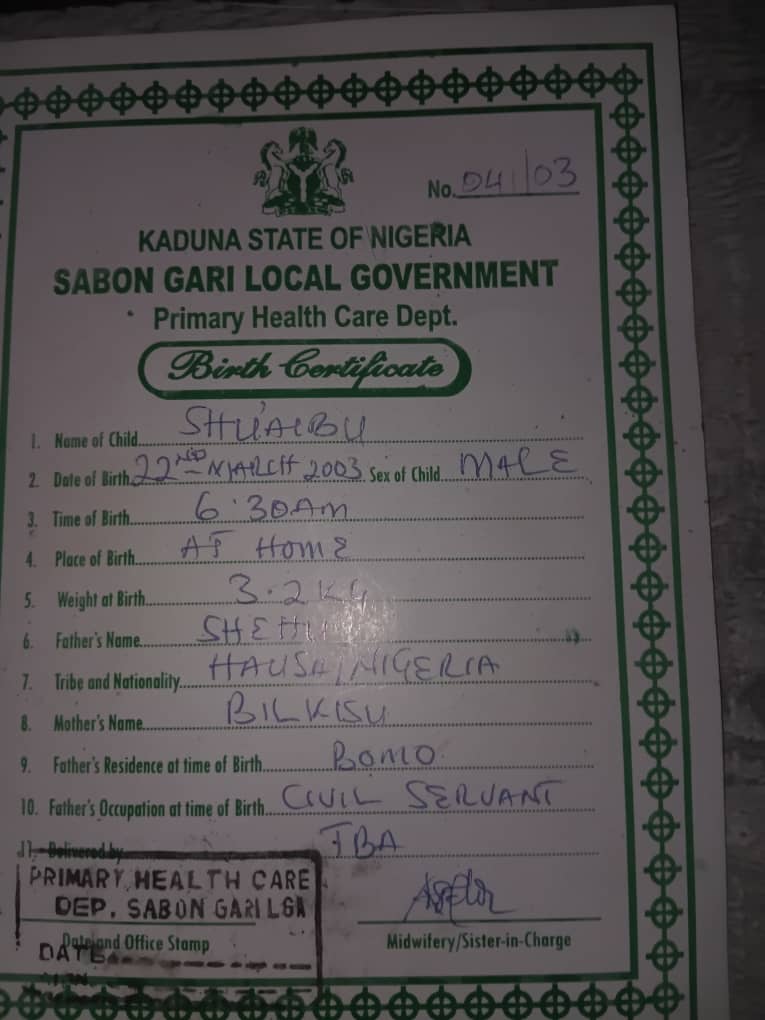 No. 041/03
KADUNA STATE OF NIGERIA
SABON GARI LOCAL GOVERNMENT
Primary Health Care Dept.
Birth Certificate
1. Name of Child SHU'AIBU
2. Date of Birth 22ND MARCH 2003 Sex of Child MALE
3. Time of Birth 6.30AM
4. Place of Birth AT HOME
5. Weight at Birth 3.2KG
6. Father's Name SHEHU
7. Tribe and Nationality HAUSA/NIGERIA
8. Mother's Name BILKISU
9. Father's Residence at time of Birth BOMO
10. Father's Occupation at time of Birth CIVIL SERVANT
11. Delivered by TBA
PRIMARY HEALTH CARE
DEP. SABON GARI LGA
Date and Office Stamp Midwifery/Sister-in-Charge
DATE